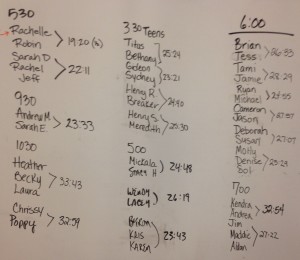 530
Rachelle
Robin
19:20
Sarah D
Rachel
Jeff
22:11
930
Andrea M.
Sarah E.
23:33
1030
Heather
Becky
Laura
33:43
Chrissy
Poppy
32:59
3:30 Teens
Titus
Bethany
25:24
Gedeon
Sydney
23:21
Henry R.
Breaker
24:40
Henry S.
Meredith
25:30
500
Mickala
Grace H
24:48
Wendy
Lacey
26:19
Kris
Karen
23:43
6:00
Brian
Jess
26:33
Tami
Jamie
28:29
Ryan
Michael
24:55
Cameron
Jason
Deborah
Susan
27:07
Molly
Denise
25:29
700
Kendra
Andrea
32:54
Jim
Maddie
Allan
27:22